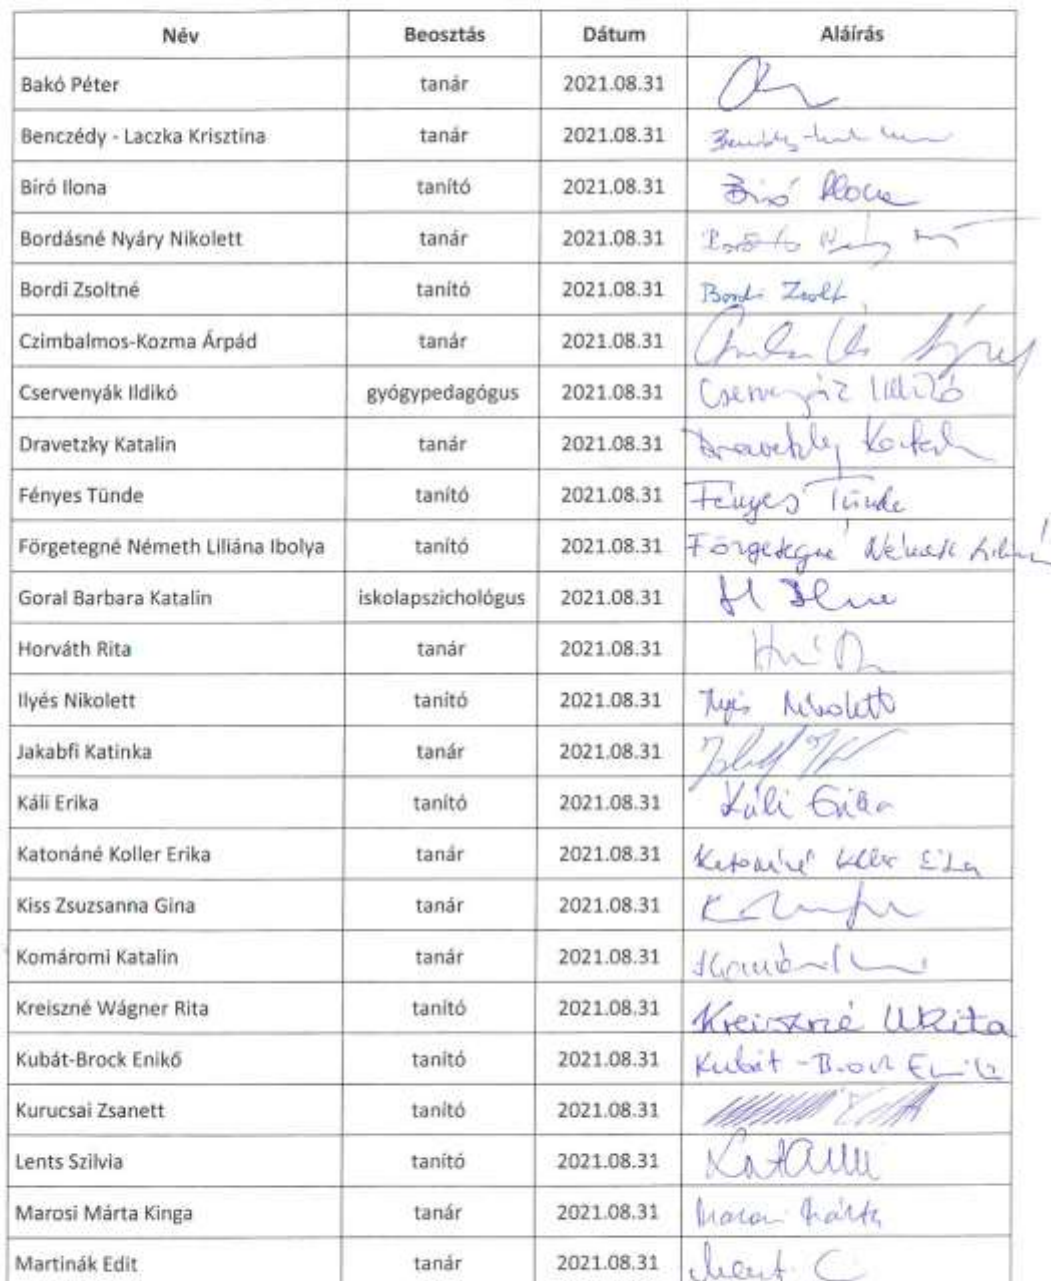 Név Beosztás Dátum Aláírás
Bakó Péter tanár 2021.08.31
Benczédy - Laczka Krisztina tanár 2021.08.31
Bíró Ilona tanító 2021.08.31 Bíró Ilona
Bordásné Nyáry Nikolett tanár 2021.08.31
Bordi Zsoltné tanító 2021.08.31 Bordi Zsolt
Czimbalmos-Kozma Árpád tanár 2021.08.31
Cservenyák Ildikó gyógypedagógus 2021.08.31 Cservenyák Ildikó
Dravetzky Katalin tanár 2021.08.31 Dravetzky Katalin
Fényes Tünde tanító 2021.08.31 Fényes Tünde
Förgetegné Németh Liliána Ibolya tanító 2021.08.31 Förgetegné Németh Liliána
Goral Barbara Katalin iskolapszichológus 2021.08.31
Horváth Rita tanár 2021.08.31
Ilyés Nikolett tanító 2021.08.31 Ilyés Nikolett
Jakabfi Katinka tanár 2021.08.31
Káli Erika tanító 2021.08.31 Káli Erika
Katonáné Koller Erika tanár 2021.08.31 Katonáné Koller Erika
Kiss Zsuzsanna Gina tanár 2021.08.31
Komáromi Katalin tanár 2021.08.31
Kreiszné Wágner Rita tanító 2021.08.31 Kreiszné WRita
Kubát-Brock Enikő tanító 2021.08.31 Kubát-Brock Enikő
Kurucsai Zsanett tanító 2021.08.31
Lents Szilvia tanító 2021.08.31
Marosi Márta Kinga tanár 2021.08.31 Marosi Márta
Martinák Edit tanár 2021.08.31